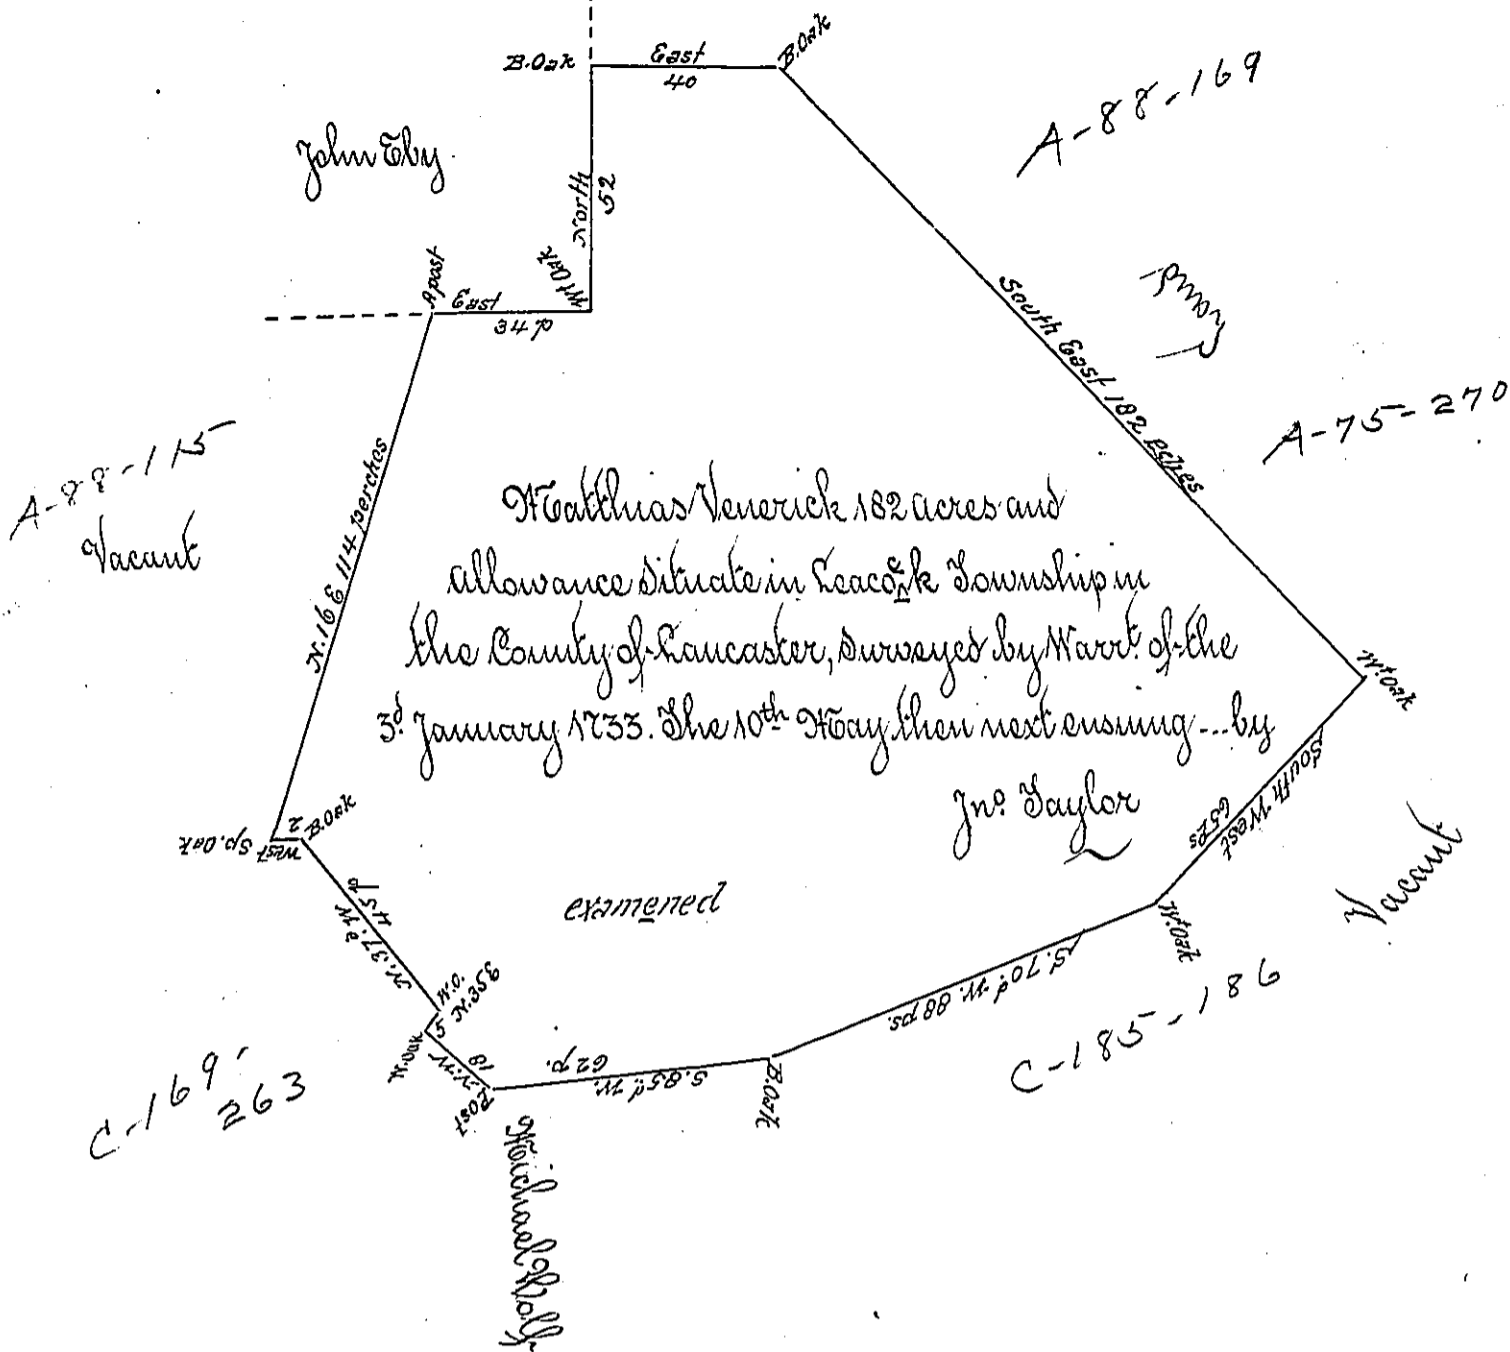 B.Oak
East
40
B.Oak
A-88-169
John Eby
North
52
Wt Oak
A post
East
34 p
Land
South East 182 pches
A-75-270
A-88-115
Vacant
N.16 E 114 perches
Matthias Venerick 182 acres and
allowance Situate in Leacock Township in
the County of Lancaster, Surveyed by Warrt. of the
3d. January 1733. The 10th May then next ensuing...by
Jno. Taylor
Wt Oak
South West
65 Ps
Vacant
2
B.Oak
West
Sp.Oak
N.37.d W
45 p
examened
Wt Oak
S.70.d W. 88 ps.
C-185-186
W.O.
N.35 E
5
W.Oak
N.W
18
Post
S.85.d W.
62 p.
B.Oak
C-169-
263
Michael Wolf